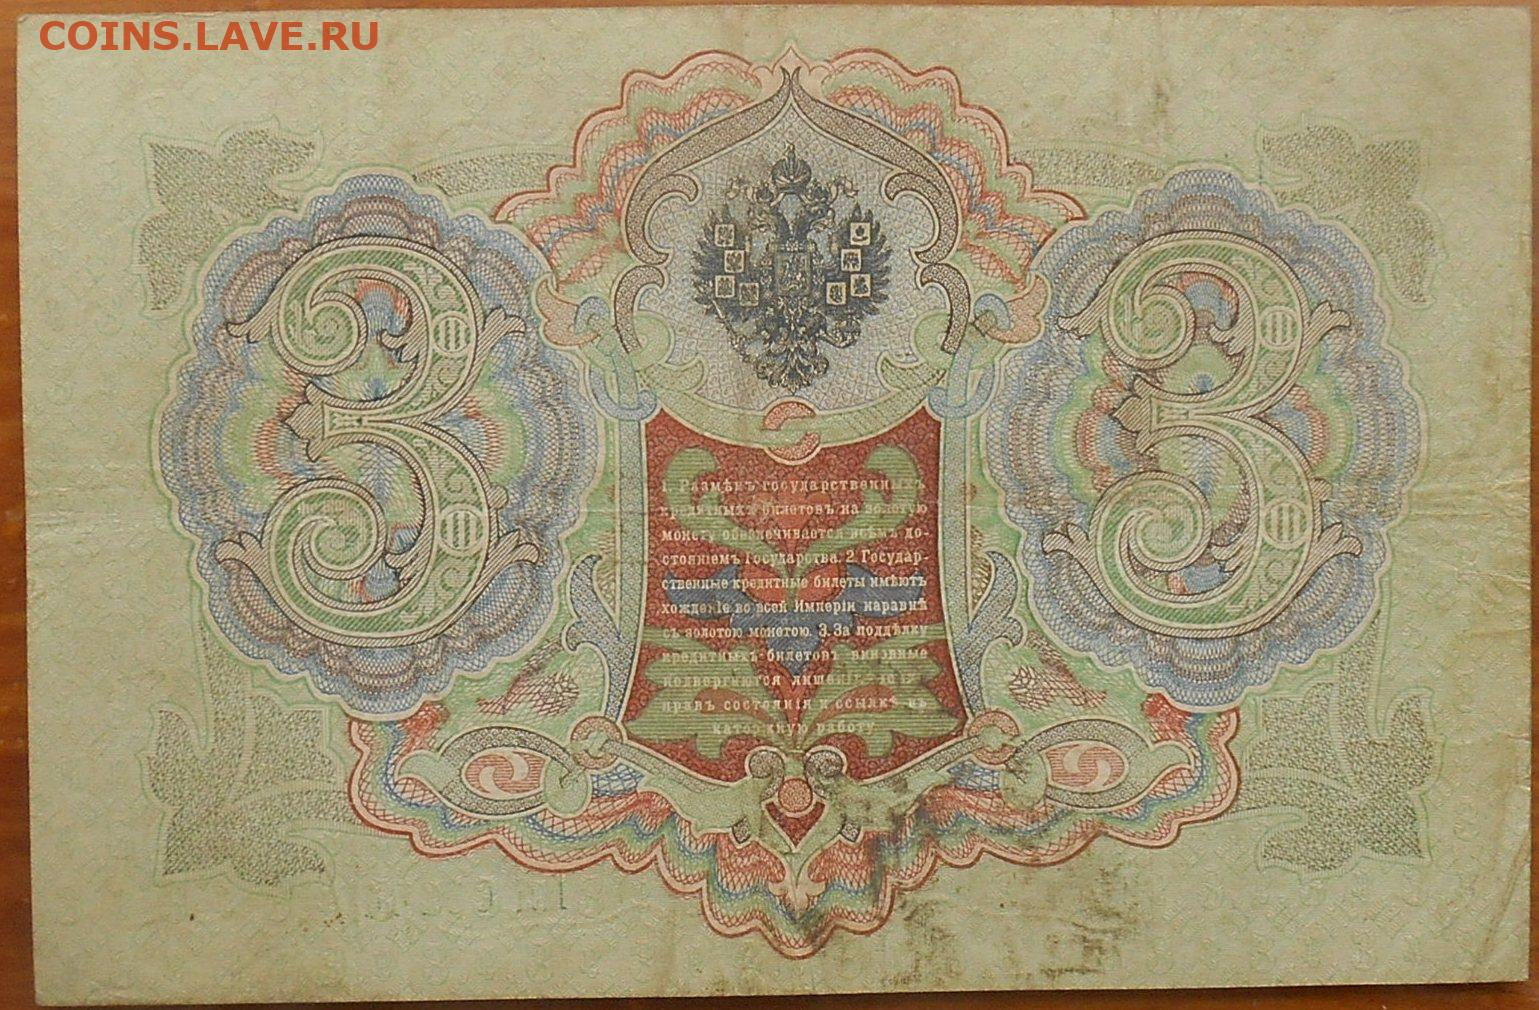 COINS.LAVE.RU
3 3
1. Размѣнъ государственныхъ
кредитныхъ билетовъ на золотую
монету обезпечивается всѣмъ до-
стояніемъ Государства. 2. Государ-
ственные кредитные билеты имѣютъ
хожденіе во всей Имперіи наравнѣ
съ золотою монетою. 3. За поддѣлку
кредитныхъ билетовъ виновные
подвергаются лишенію
правъ состоянія и ссылкѣ въ
каторжную работу